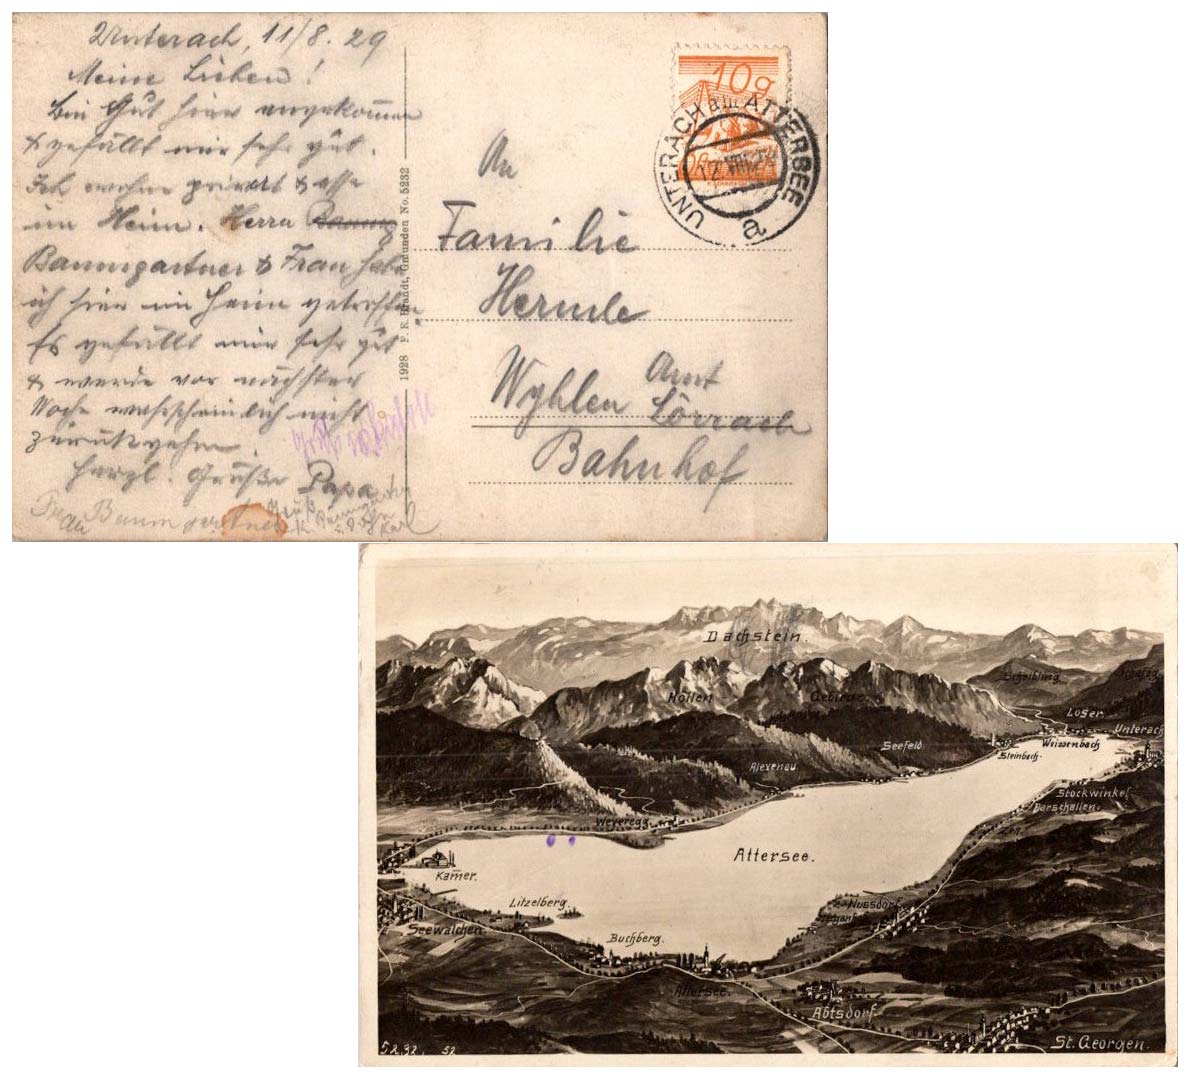 Unterach, 11/8. 29
Meine Lieben!
Bin Gut hier angekommen
& gefällt mir sehr gut.
Ich wohne privat & esse
im Heim. Herrn
Baumgartner & Frau habe
ich hier im Heim getroffen
Es gefällt mir sehr gut
& werde vor nächster
Woche wahrscheinlich nicht
zurückgehn.
Herzl. Grüße Papa
Frau Baumgartner
Gruß
K. Baumgartner
Karl
1928 F. E. Brandt, Gmunden No. 5232
10g
UNTERACH am ATTERSEE
a
An
Familie
Hermle
Wyhlen Amt
Lörrach
Bahnhof
Dachstein.
Höllen - Gebirge
Scheibling
Loser.
Unterach
Weissenbach
Steinbach
Seefeld
Alexenau
Stockwinkel
Parschallen.
Zell
Weyeregg
Attersee.
Kamer.
Litzelberg
Nussdorf
Seewalchen.
Buchberg.
Attersee.
Abtsdorf
St. Georgen.
5232. 52